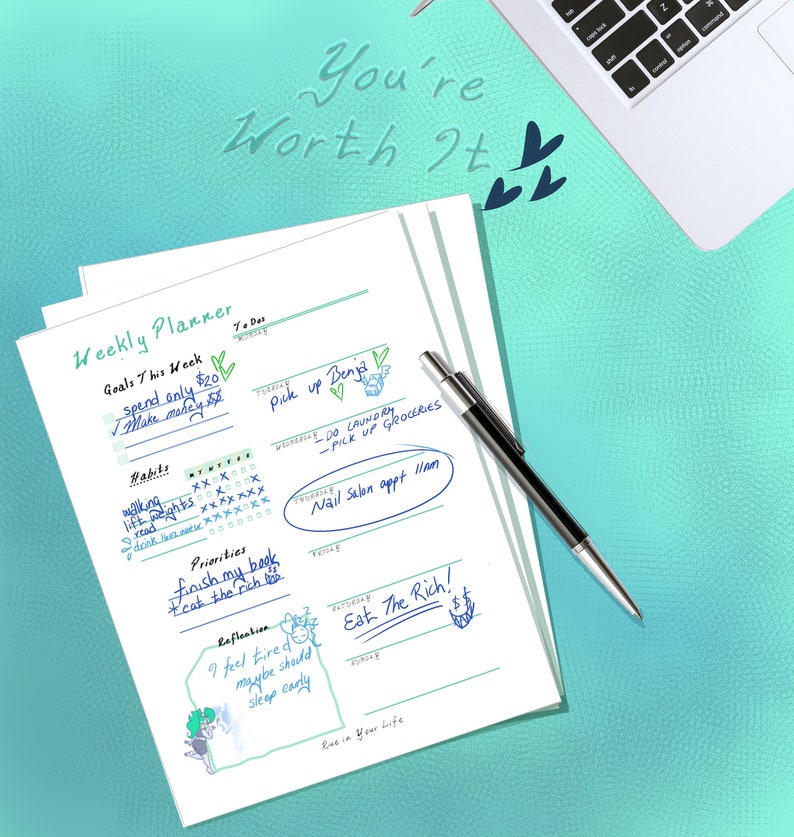 You're
Worth It
tab
caps lock
shift
fn
control
alt
option
⌘
command
Z
X
Weekly Planner
Goals This Week
spend only $20
✓ Make money $$
Habits
M T W T F S S
walking
lift weights
read
drink 16oz water
Priorities
finish my book
* eat the rich $$
Reflection
I feel tired
maybe should
sleep early
To Dos
MONDAY
TUESDAY
pick up Benja
WEDNESDAY
- DO LAUNDRY
- PICK UP GROCERIES
THURSDAY
Nail Salon appt 11AM
FRIDAY
SATURDAY
Eat The Rich!
$$
SUNDAY
Rue in Your Life